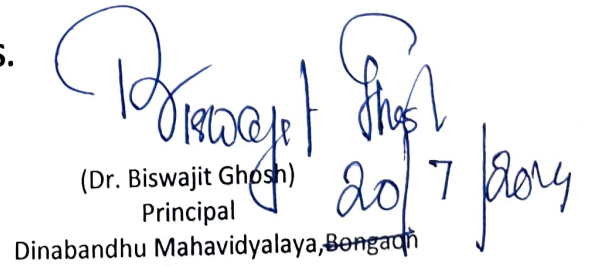 s.
Biswajit Ghosh
20/7/2024
(Dr. Biswajit Ghosh)
Principal
Dinabandhu Mahavidyalaya, Bongaon